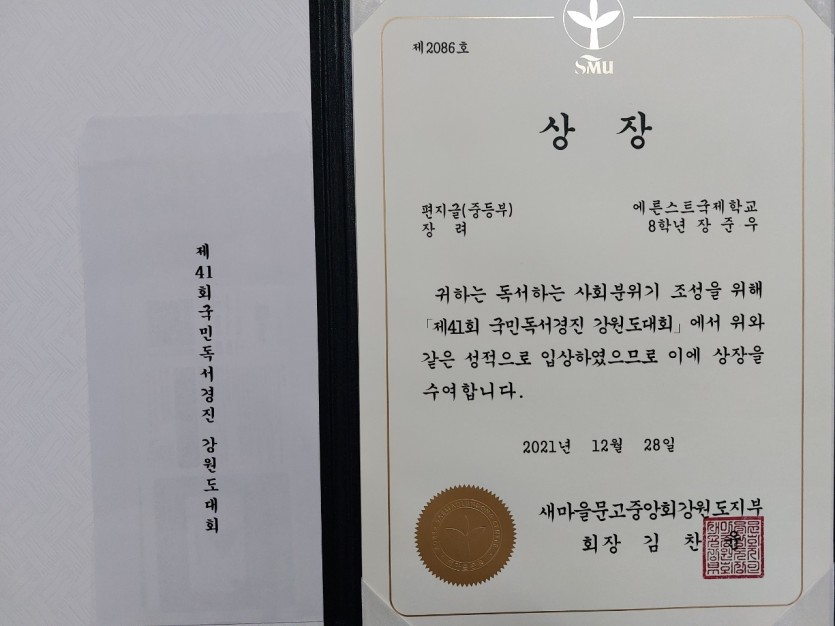 제41회 국민독서경진 강원도대회
제2086호
SMU
상 장
편지글(중등부)
장 려
에른스트국제학교
8학년 장 준 우
귀하는 독서하는 사회분위기 조성을 위해
「제41회 국민독서경진 강원도대회」에서 위와
같은 성적으로 입상하였으므로 이에 상장을
수여합니다.
2021년 12월 28일
새마을문고중앙회강원도지부
회장 김 찬